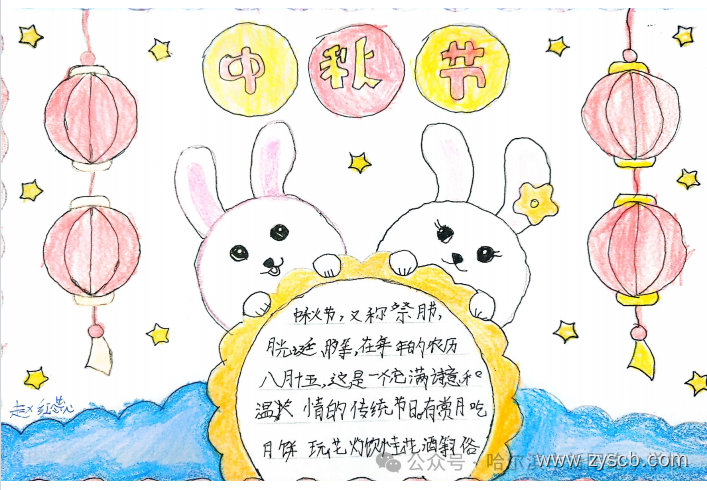 中秋节
中秋节，又称祭月节，
月光诞，在每年的农历
八月十五，这是一个充满诗意和
温 情的传统节日有赏月吃
月饼 玩花灯饮桂花酒等俗
公众号·哈尔
www.zyscb.com